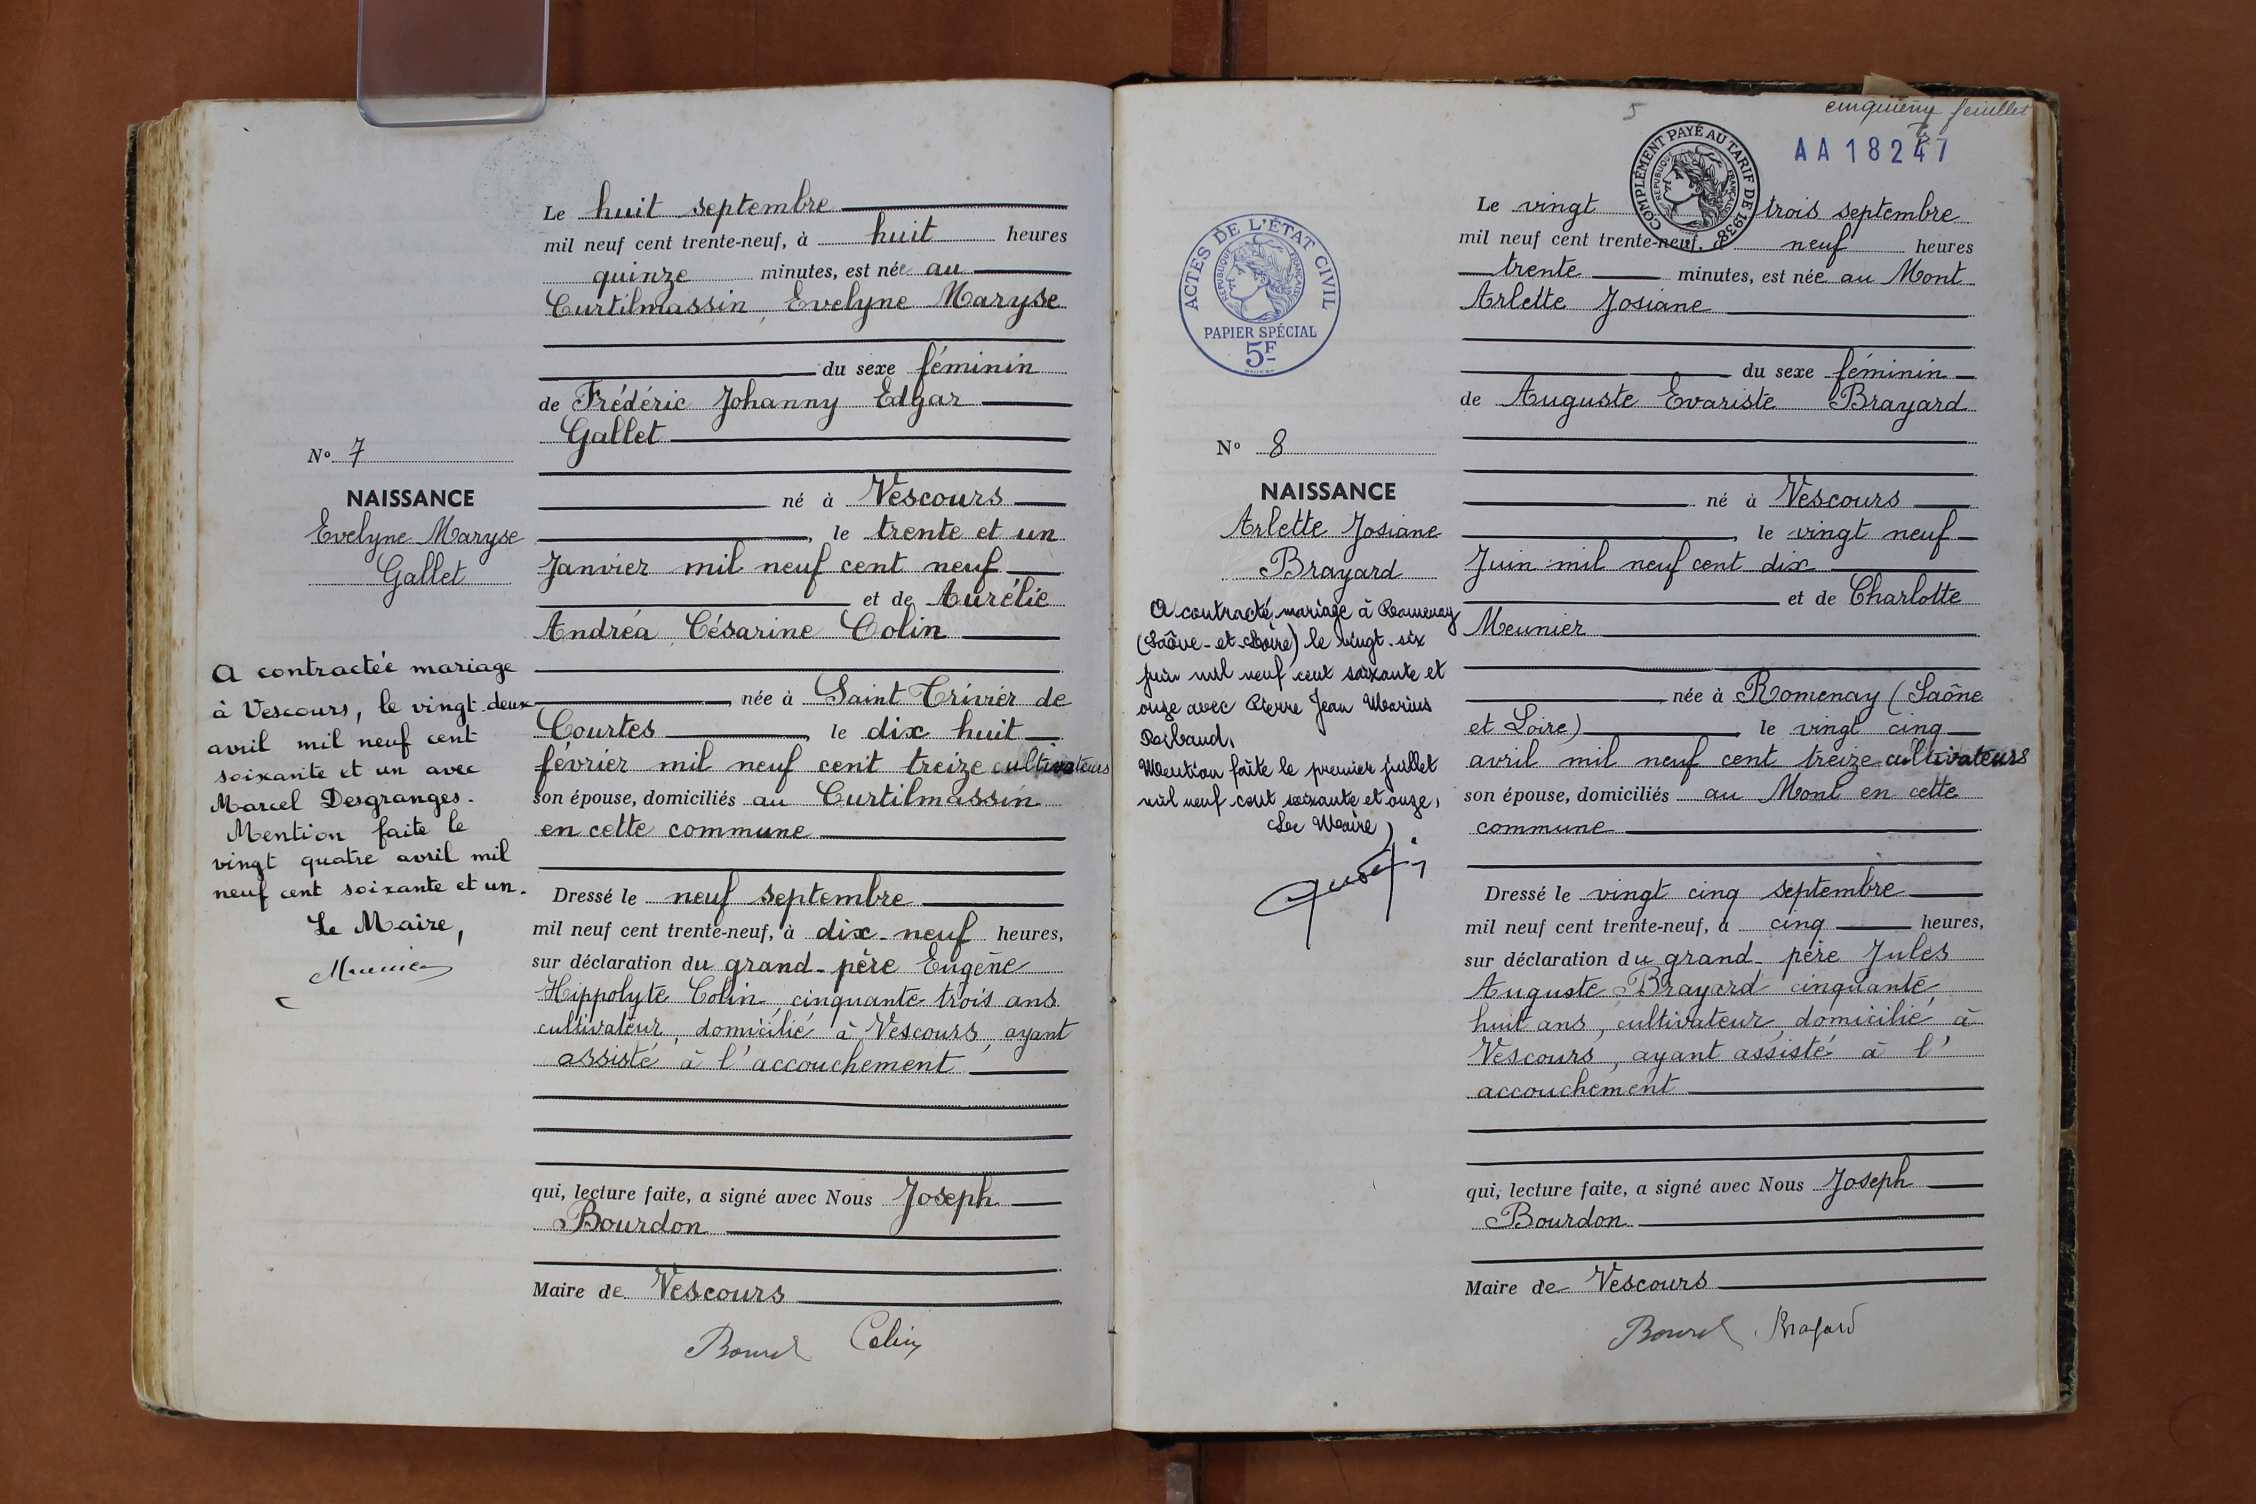 Le huit septembre
mil neuf cent trente-neuf, à huit heures
quinze minutes, est née au
Curtilmassin, Evelyne Maryse
du sexe féminin
de Frédéric Johanny Edgar
Gallet
N° 7
NAISSANCE
Evelyne Maryse
Gallet
né à Vescours
, le trente et un
Janvier mil neuf cent neuf
et de Aurélie
Andréa Césarine Colin
née à Saint Trivier de
Courtes, le dix huit
février mil neuf cent treize cultivateurs
son épouse, domiciliés au Curtilmassin
en cette commune
A contractée mariage
à Vescours, le vingt-deux
avril mil neuf cent
soixante et un avec
Marcel Desgranges.
Mention faite le
vingt quatre avril mil
neuf cent soixante et un.
Le Maire,
Dressé le neuf septembre
mil neuf cent trente-neuf, à dix-neuf heures,
sur déclaration du grand-père Eugène
Hippolyte Colin, cinquante-trois ans
cultivateur, domicilié à Vescours, ayant
assisté à l'accouchement
qui, lecture faite, a signé avec Nous Joseph
Bourdon
Maire de Vescours
Colin
5
cinquième feuillet
AA18247
COMPLÉMENT PAYÉ AU TARIF DE 1938
RÉPUBLIQUE FRANÇAISE
ACTES DE L'ÉTAT CIVIL
RÉPUBLIQUE FRANÇAISE
PAPIER SPÉCIAL
5F
Le vingt trois septembre
mil neuf cent trente-neuf, à neuf heures
trente minutes, est née au Mont
Arlette Josiane
du sexe féminin
de Auguste Evariste Brayard
N° 8
NAISSANCE
Arlette Josiane
Brayard
né à Vescours
, le vingt neuf
Juin mil neuf cent dix
et de Charlotte
Meunier
née à Romenay (Saône
et Loire) le vingt cinq
avril mil neuf cent treize cultivateurs
son épouse, domiciliés au Mont en cette
commune
A contracté mariage à Romenay
(Saône-et-Loire) le vingt-six
juin mil neuf cent soixante et
onze avec Pierre Jean Marius
Mention faite le premier juillet
mil neuf cent soixante et onze,
Le Maire,
Dressé le vingt cinq septembre
mil neuf cent trente-neuf, à cinq heures,
sur déclaration du grand-père Jules
Auguste Brayard cinquante
huit ans, cultivateur, domicilié à
Vescours, ayant assisté à l'
accouchement
qui, lecture faite, a signé avec Nous Joseph
Bourdon
Maire de Vescours
Brayard